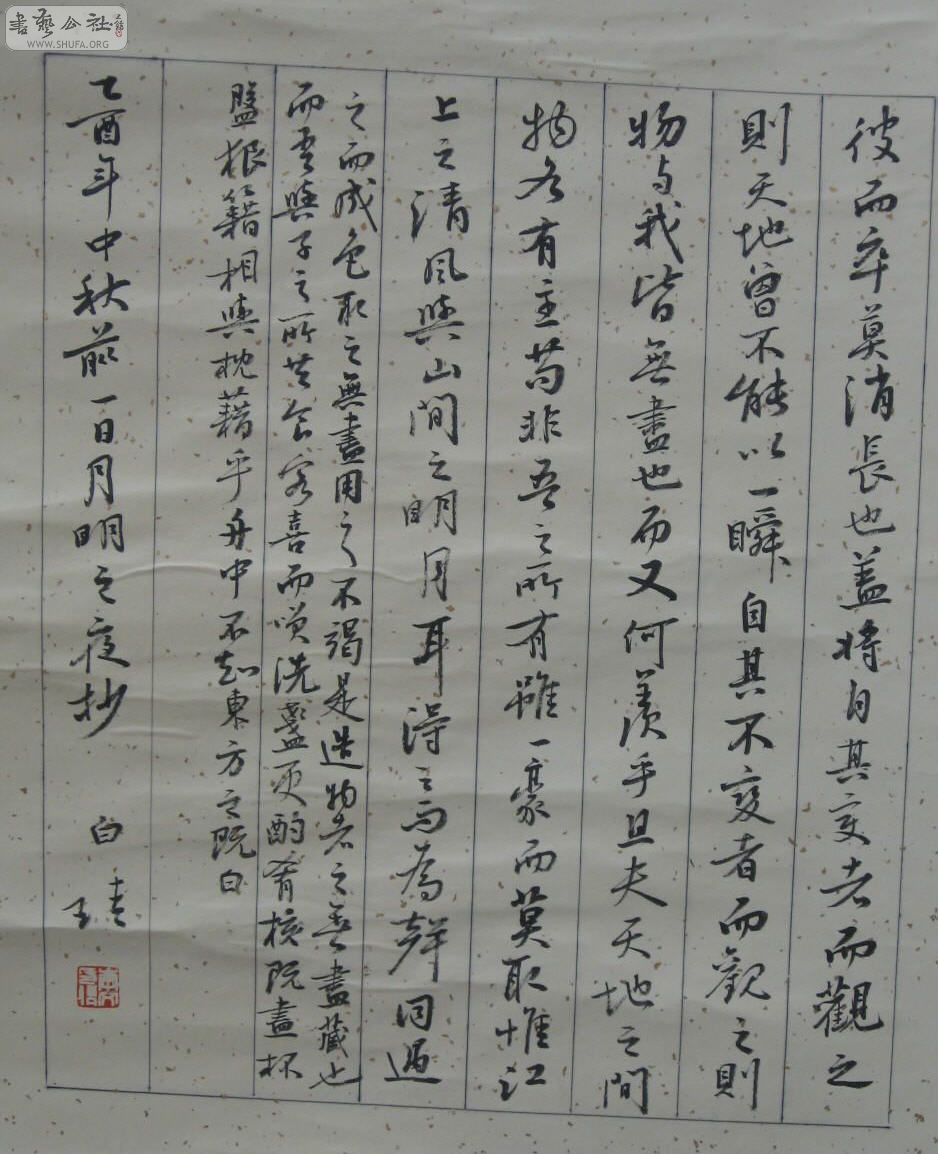 書藝公社
WWW.SHUFA.ORG
彼而卒莫消長也盖將自其变者而觀之
則天地曾不能以一瞬自其不变者而觀之則
物与我皆無盡也而又何羡乎且夫天地之間
物各有主苟非吾之所有雖一豪而莫取惟江
上之清風與山間之明月耳得之而為聲目遇
之而成色取之無盡用之不竭是造物者之無盡藏也
而吾與子之所共食客喜而笑洗盞更酌肴核既盡杯
盤根籍相與枕藉乎舟中不知東方之既白
乙酉年中秋前一日月明之夜抄 白